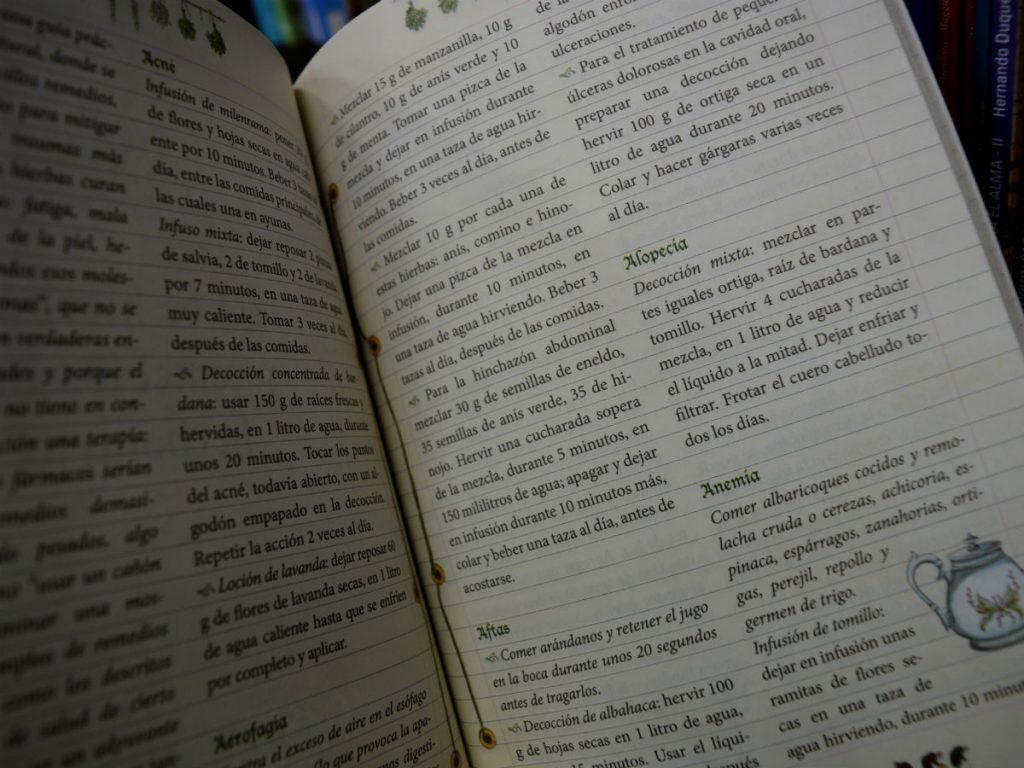 una guía prác-
donde se
remedios,
para mitigar
traumas más
hierbas curan
fatiga, mala
de la piel, he-
esos moles-
que no se
verdaderas en-
y porque el
no tiene en con-
una terapia:
fármacos serían
remedios demasi-
pesados, algo
"usar un cañón
remedios
como los descritos
de salud de cierto
Acné
Infusión de milenrama: poner
de flores y hojas secas en agua
ente por 10 minutos. Beber 3
día, entre las comidas principales,
las cuales una en ayunas.
Infuso mixta: dejar reposar 2
de salvia, 2 de tomillo y 2 de lavanda
por 7 minutos, en una taza de agua
muy caliente. Tomar 3 veces al día,
después de las comidas.
Decocción concentrada de bar-
dana: usar 150 g de raíces frescas y
hervidas, en 1 litro de agua, durante
unos 20 minutos. Tocar los puntos
del acné, todavía abierto, con un al-
godón empapado en la decocción.
Repetir la acción 2 veces al día.
Loción de lavanda: dejar reposar 60
g de flores de lavanda secas, en 1 litro
de agua caliente hasta que se enfríen
por completo y aplicar.
Aerofagia
el exceso de aire en el esófago
lo que provoca la apa-
digesti-
Mezclar 15 g de manzanilla, 10 g
de cilantro, 10 g de anís verde y 10
g de menta. Tomar una pizca de la
mezcla y dejar en infusión durante
10 minutos, en una taza de agua hir-
viendo. Beber 3 veces al día, antes de
las comidas.
Mezclar 10 g por cada una de
estas hierbas: anís, comino e hino-
jo. Dejar una pizca de la mezcla en
infusión, durante 10 minutos, en
una taza de agua hirviendo. Beber 3
tazas al día, después de las comidas.
Para la hinchazón abdominal
mezclar 30 g de semillas de eneldo,
35 semillas de anís verde, 35 de hi-
nojo. Hervir una cucharada sopera
de la mezcla, durante 5 minutos, en
150 mililitros de agua; apagar y dejar
en infusión durante 10 minutos más,
colar y beber una taza al día, antes de
acostarse.
Aftas
Comer arándanos y retener el jugo
en la boca durante unos 20 segundos
antes de tragarlos.
Decocción de albahaca: hervir 100
g de hojas secas en 1 litro de agua,
15 minutos. Usar el líqui-
de la
algodón
ulceraciones.
Para el tratamiento de pequeñ
úlceras dolorosas en la cavidad oral,
preparar una decocción dejando
hervir 100 g de ortiga seca en un
litro de agua durante 20 minutos.
Colar y hacer gárgaras varias veces
al día.
Alopecía
Decocción mixta: mezclar en par-
tes iguales ortiga, raíz de bardana y
tomillo. Hervir 4 cucharadas de la
mezcla, en 1 litro de agua y reducir
el líquido a la mitad. Dejar enfriar y
filtrar. Frotar el cuero cabelludo to-
dos los días.
Anemía
Comer albaricoques cocidos y remo-
lacha cruda o cerezas, achicoria, es-
pinaca, espárragos, zanahorias, orti-
gas, perejil, repollo y
germen de trigo.
Infusión de tomillo:
dejar en infusión unas
ramitas de flores se-
cas en una taza de
agua hirviendo, durante 10 minu
Hernando Duque
EL ALMA - II